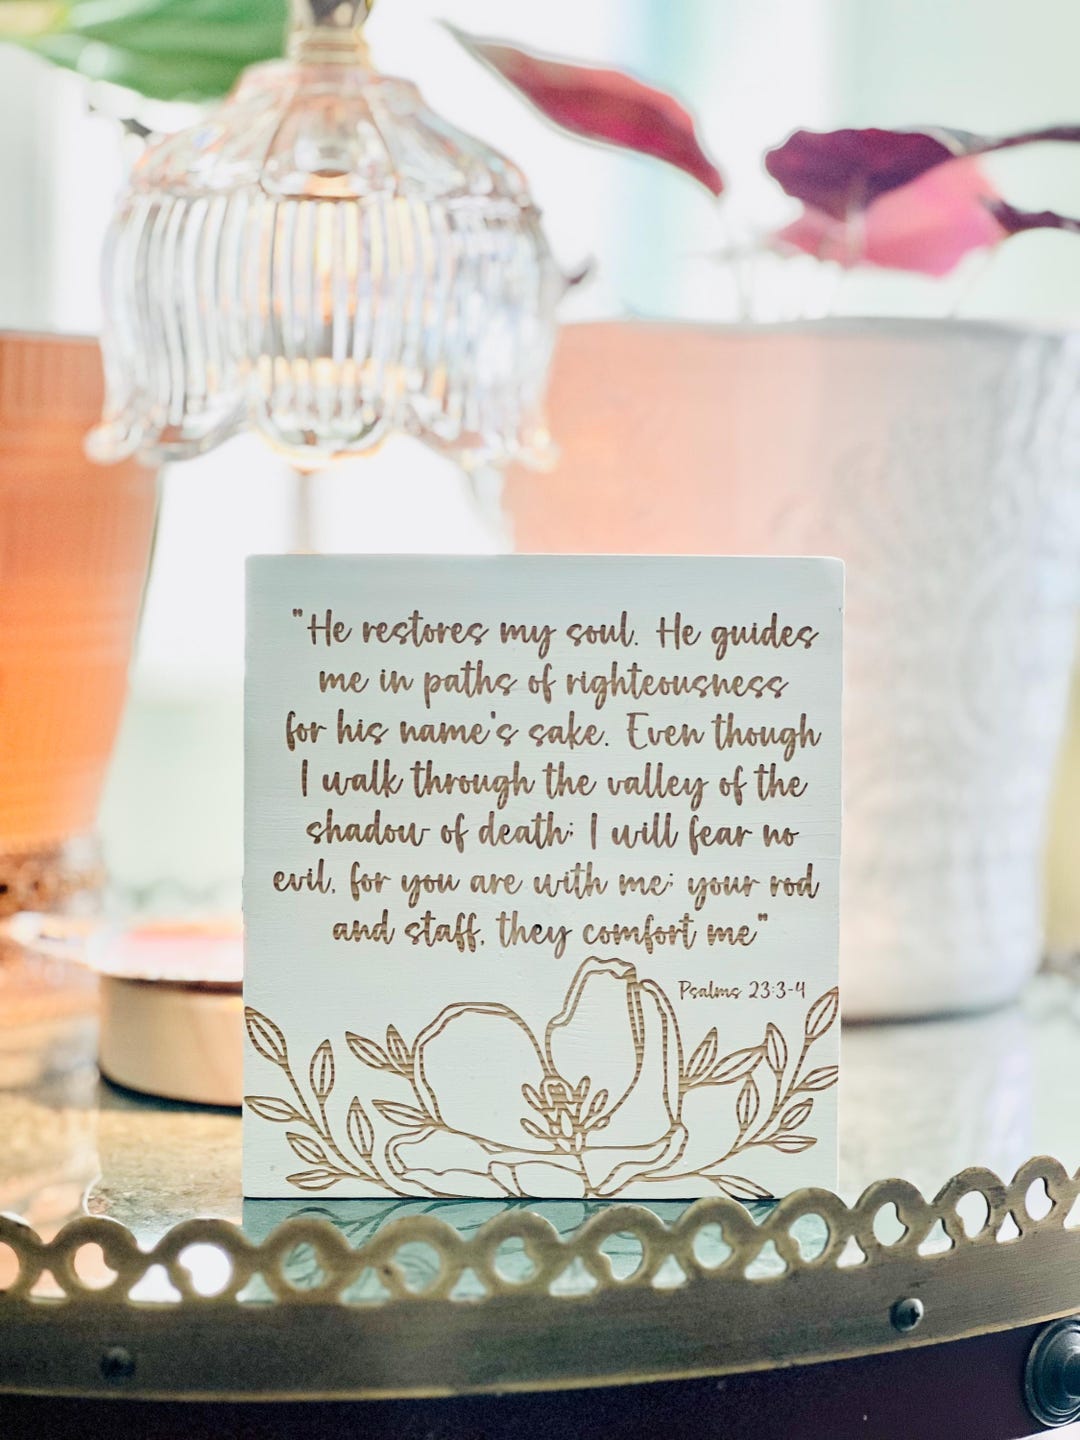 "He restores my soul. He guides
me in paths of righteousness
for his name's sake. Even though
I walk through the valley of the
shadow of death; I will fear no
evil, for you are with me; your rod
and staff, they comfort me"
Psalms 23:3-4